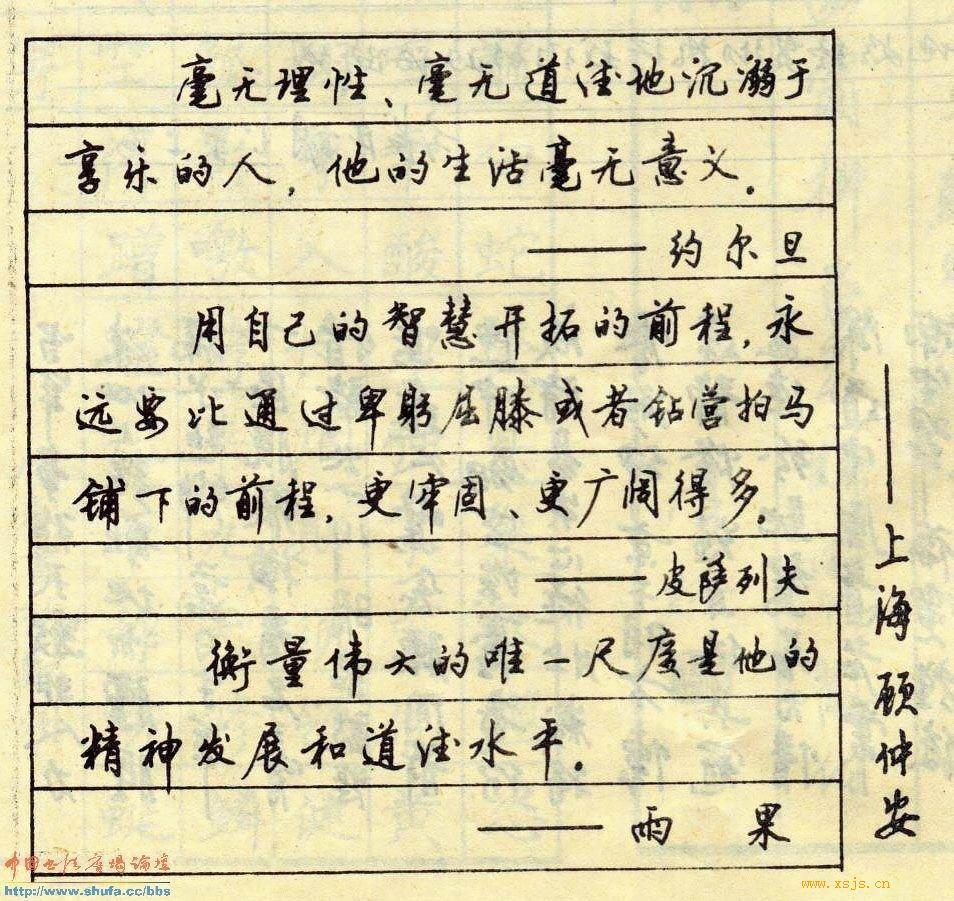 毫无理性、毫无道德地沉溺于
享乐的人，他的生活毫无意义。
——约尔旦
用自己的智慧开拓的前程，永
远要比通过卑躬屈膝或者钻营拍马
铺下的前程，更牢固、更广阔得多。
——皮萨列夫
衡量伟大的唯一尺度是他的
精神发展和道德水平。
——雨果
——上海顾仲安
中国书法广场论坛
http://www.shufa.cc/bbs
www.xsjs.cn